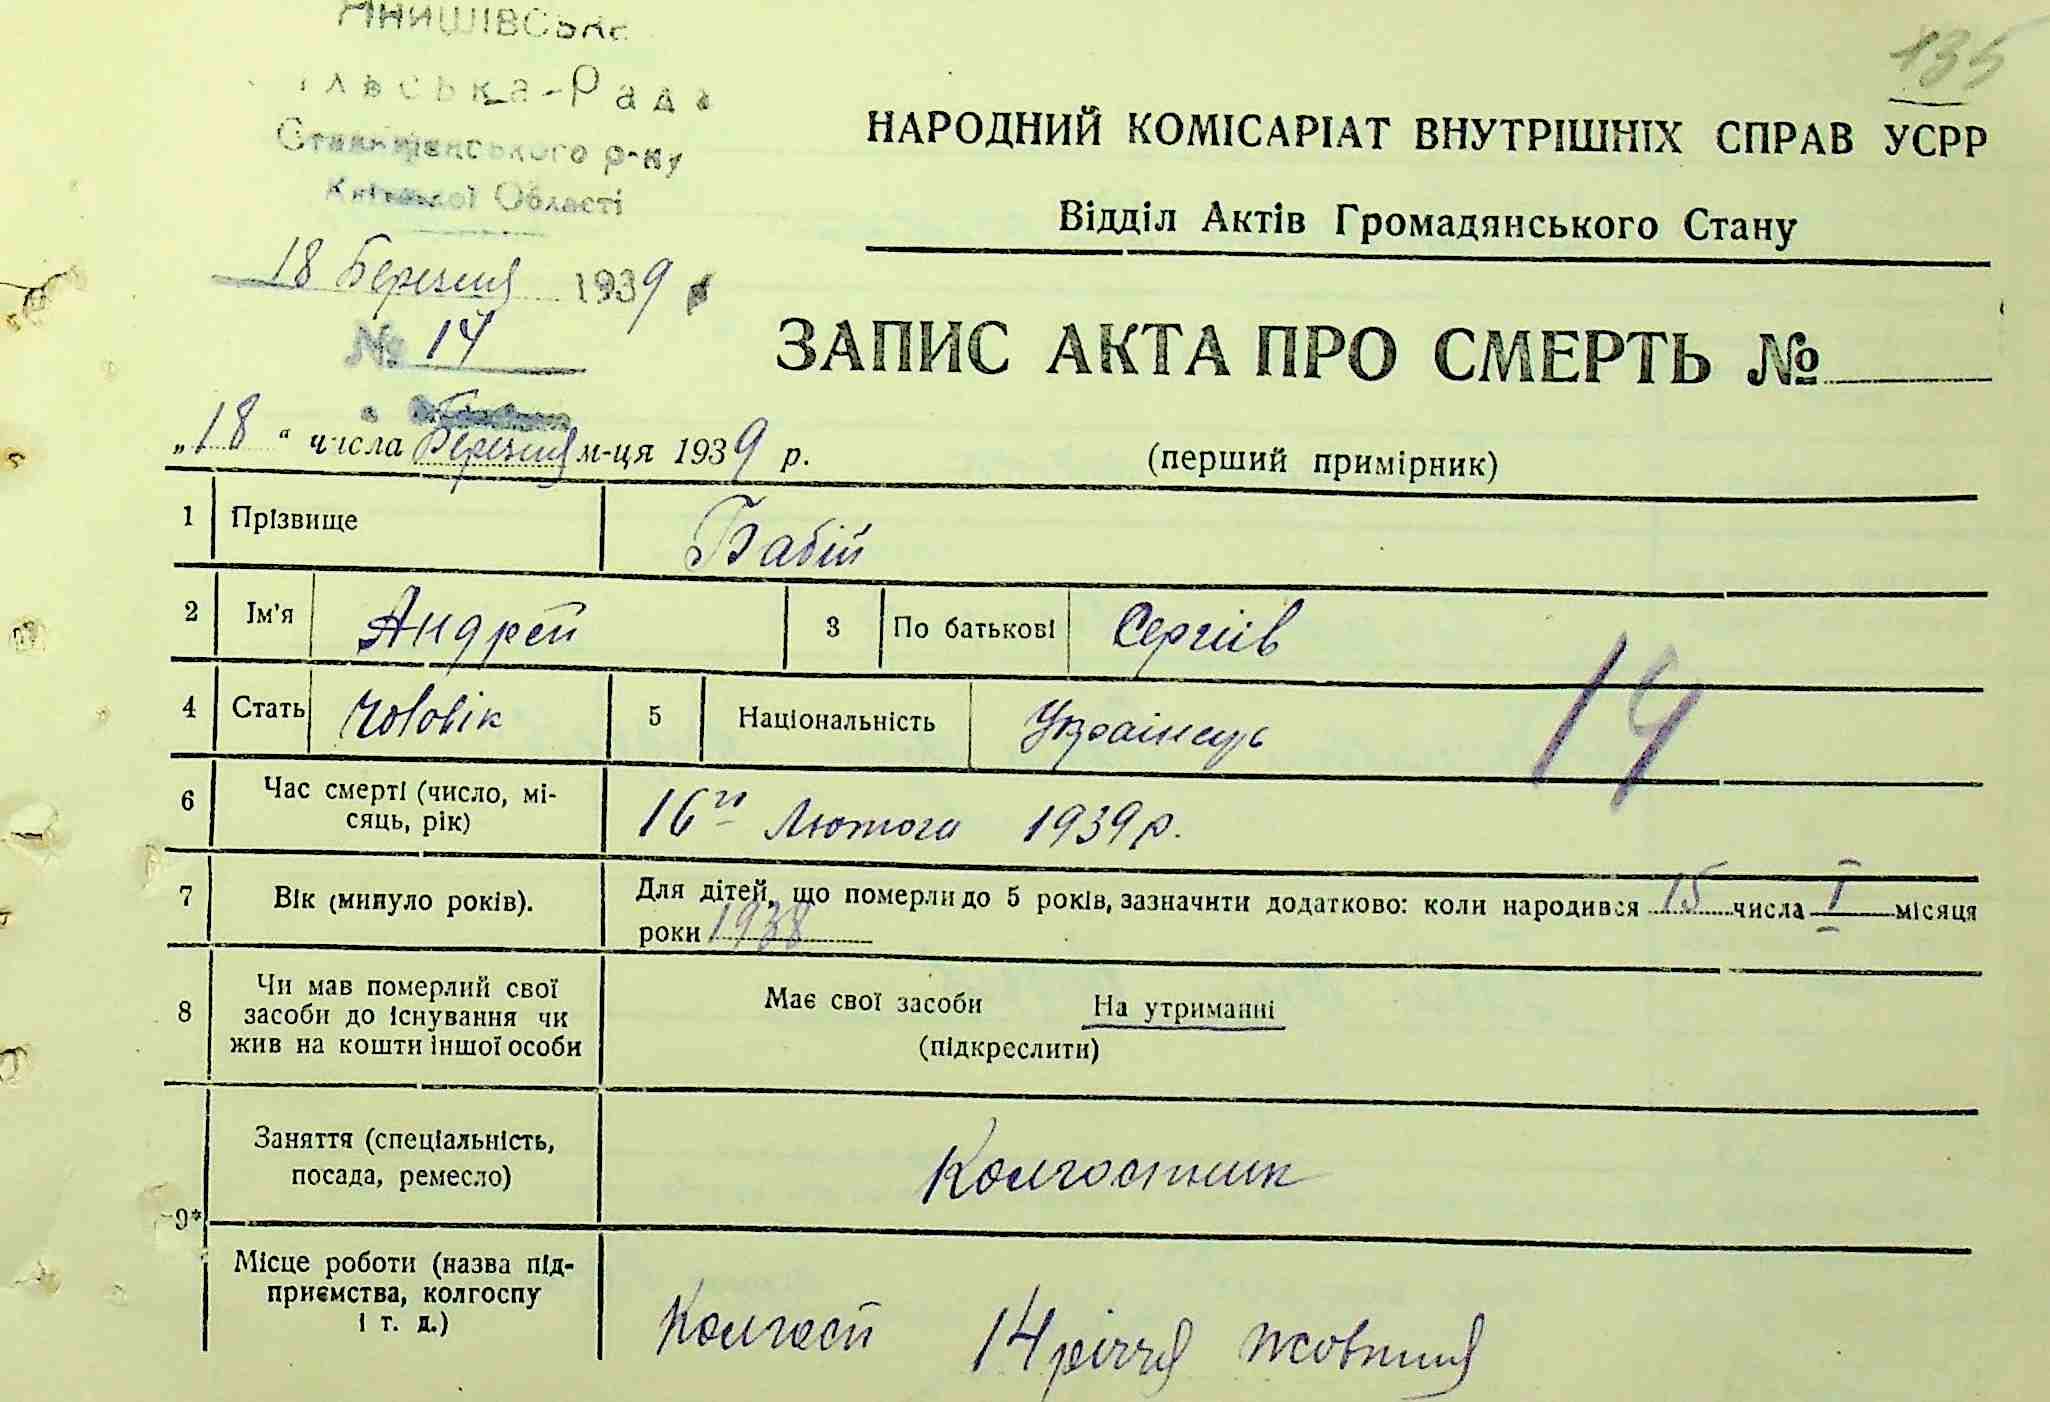 135
Рада
р-ну
Області
18 Березня 1939
№ 14
НАРОДНИЙ КОМІСАРІАТ ВНУТРІШНІХ СПРАВ УСРР
Відділ Актів Громадянського Стану
ЗАПИС АКТА ПРО СМЕРТЬ №
„18“ числа Березня м-ця 1939 р.
(перший примірник)
1 Прізвище Бабій
2 Ім’я Андрей 3 По батькові Сергіїв
4 Стать Чоловік 5 Національність Українець
14
6 Час смерті (число, мі-
сяць, рік)
16го Лютого 1939 р.
7 Вік (минуло років).
Для дітей, що померли до 5 років, зазначити додатково: коли народився 15 числа I місяця
роки 1938
8 Чи мав померлий свої
засоби до існування чи
жив на кошти іншої особи
Має свої засоби На утриманні
(підкреслити)
9*
Заняття (спеціальність,
посада, ремесло)
Колгоспник
Місце роботи (назва під-
приємства, колгоспу
і т. д.)
Колгосп 14 річчя жовтня